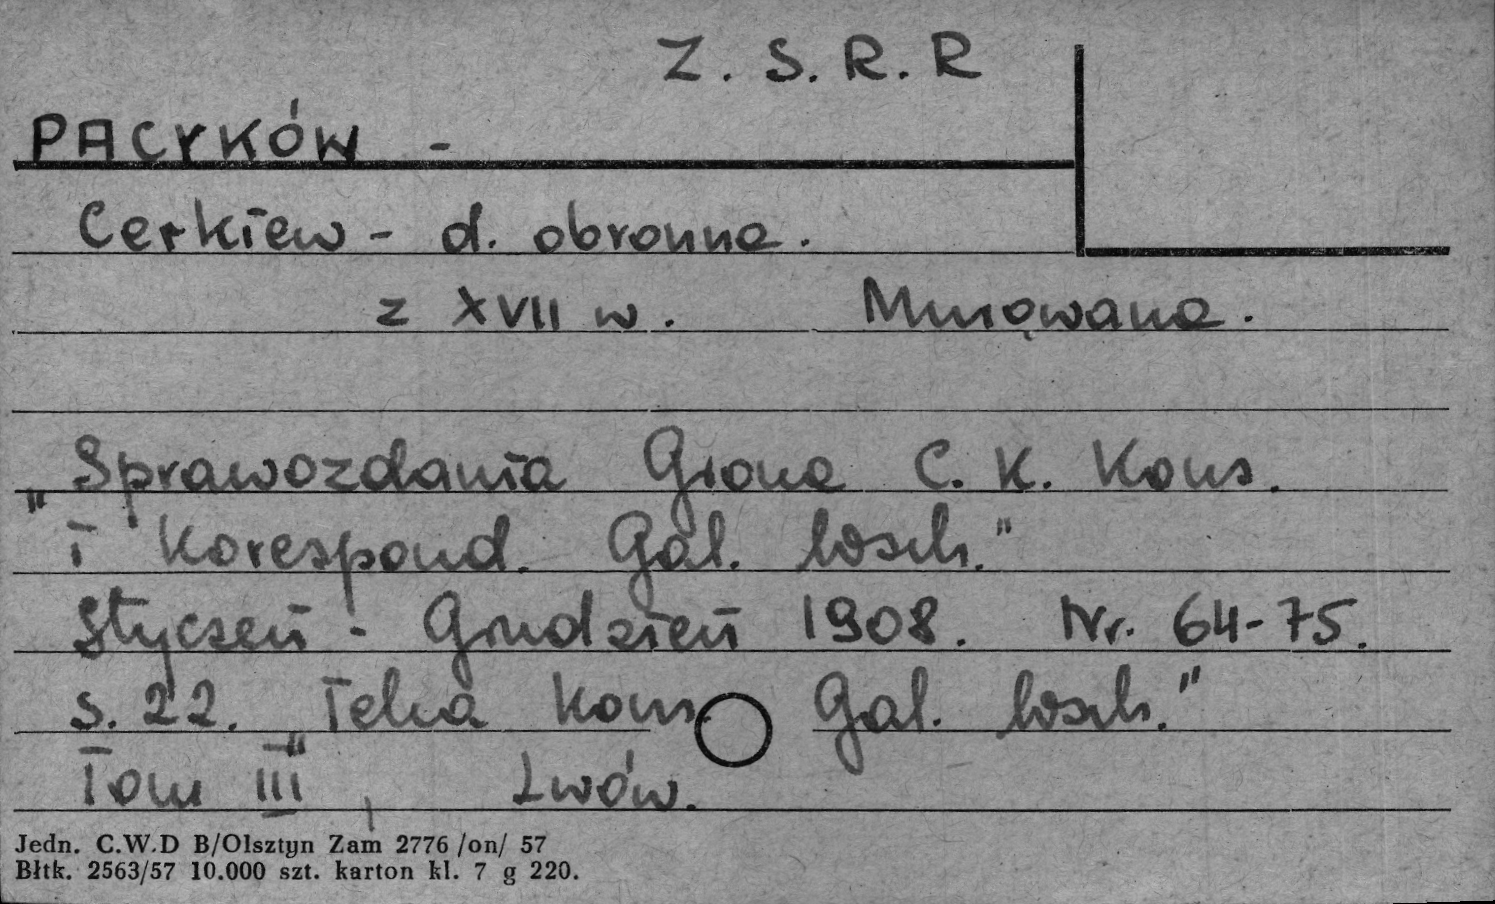 Z. S. R. R
PACYKÓW -
Cerkiew - d. obronna.
z XVII w. Murowana.
„Sprawozdania Grona C. K. Kons.
i Korespond. Gal. Wsch."
Styczeń - Grudzień 1908. Nr. 64-75.
s. 22. „Teka Kons. Gal. Wsch."
Tom III, Lwów.
Jedn. C.W.D B/Olsztyn Zam 2776 /on/ 57
Błtk. 2563/57 10.000 szt. karton kl. 7 g 220.